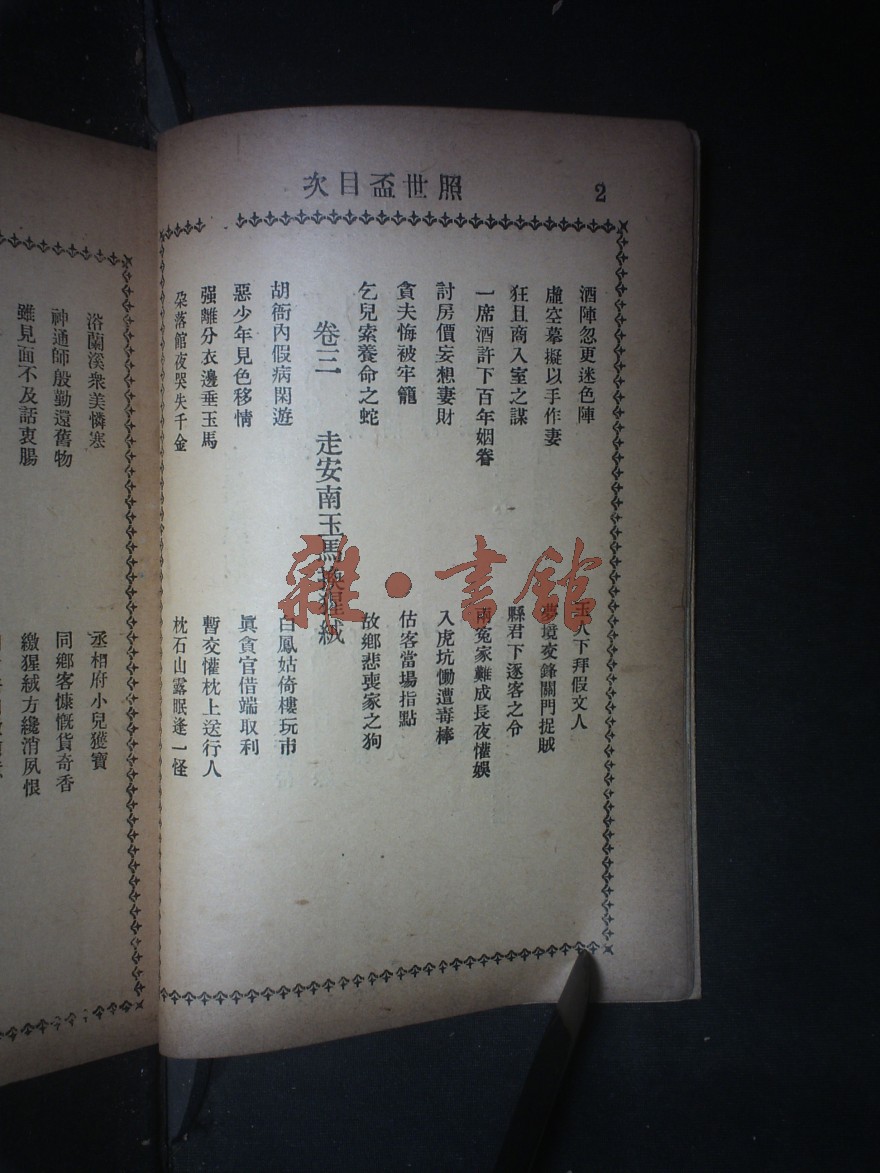 照世盃目次
2
酒陣忽更迷色陣 下拜假文人
虛空摹擬以手作妻 夢境交鋒關門捉賊
狂且商入室之謀 縣君下逐客之令
一席酒許下百年姻眷 兩冤家難成長夜懽娛
討房價妄想妻財 入虎坑慟遭毒棒
貪夫悔被牢籠 估客當場指點
乞兒索養命之蛇 故鄉悲喪家之狗
卷三 走安南玉馬換猩絨
胡衙內假病閑遊 白鳳姑倚樓玩市
惡少年見色移情 眞貪官借端取利
强離分衣邊垂玉馬 暫交懽枕上送行人
朶落館夜哭失千金 枕石山露眠逢一怪
浴蘭溪衆美憐寒 丞相府小兒獲寶
神通師殷勤還舊物 同鄉客慷慨貨奇香
雖見面不及話衷腸 繳猩絨方纔消夙恨
雜·書館